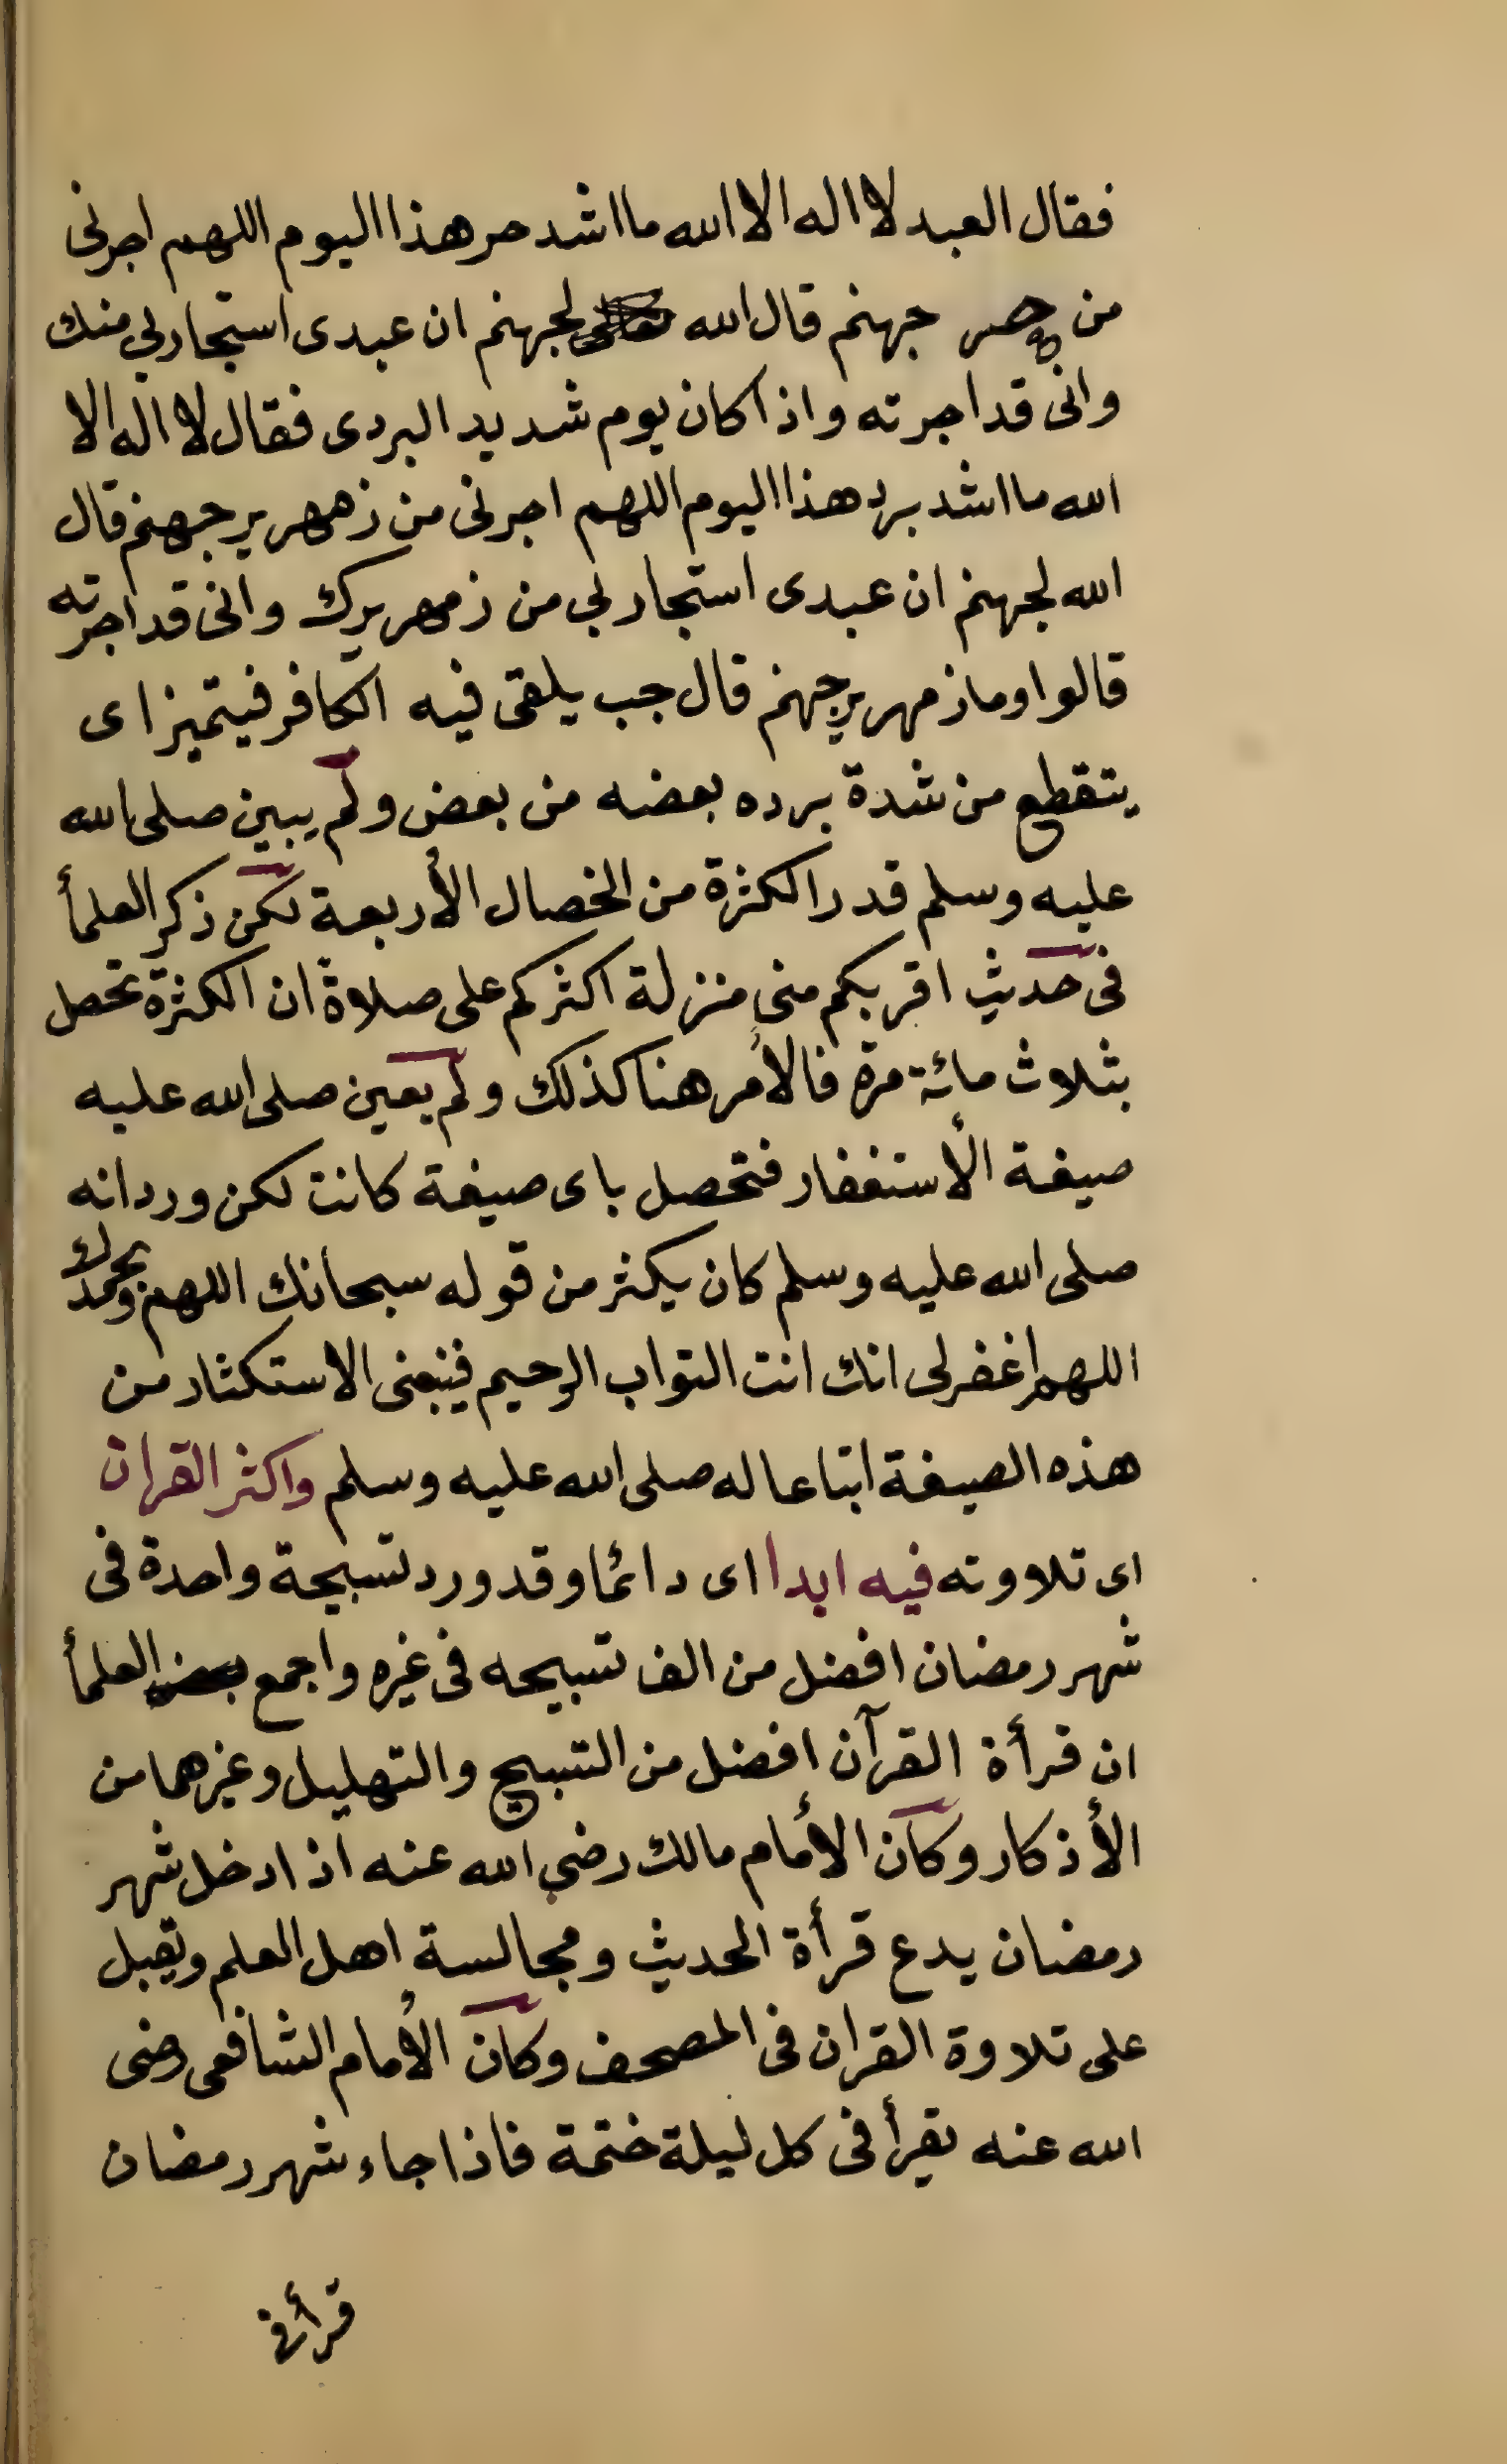 فقال العبد لا اله الا الله ما اشد حر هذا اليوم اللهم اجرنى
من حر جهنم قال الله لجهنم ان عبدى استجار بي منك
وانى قد اجرته واذا كان يوم شديد البردى فقال لا اله الا
الله ما اشد برد هذا اليوم اللهم اجرنى من زمهرير جهنم قال
الله لجهنم ان عبدى استجار بي من زمهريرك وانى قد اجرته
قالوا وما زمهرير جهنم قال جب يلقى فيه الكافر فيتميز اى
يتقطع من شدة برده بعضه من بعض ولم يبين صلى الله
عليه وسلم قدر الكثرة من الخصال الأربعة لكن ذكر العلمأ
فى حديث اقربكم منى منزلة اكثركم على صلاة ان الكثرة تحصل
بثلاث مائة مرة فالأمر هنا كذلك ولم يعين صلى الله عليه
صيغة الأستغفار فتحصل باى صيغة كانت لكن ورد انه
صلى الله عليه وسلم كان يكثر من قوله سبحانك اللهم وبحمدك
اللهم اغفر لى انك انت التواب الرحيم فينبغى الاستكثار من
هذه الصيغة اتباعا له صلى الله عليه وسلم واكثر القران
اى تلاوته فيه ابدا اى دائما وقد ورد تسبيحة واحدة فى
شهر رمضان افضل من الف تسبيحه فى غيره واجمع بعض العلمأ
ان قرأة القرآن افضل من التسبيح والتهليل وغيرهما من
الأذكار وكان الأمام مالك رضي الله عنه اذا دخل شهر
رمضان يدع قرأة الحديث ومجالسة اهل العلم ويقبل
على تلاوة القران فى المصحف وكان الأمام الشافعى رضى
الله عنه يقرأ فى كل ليلة ختمة فاذا جاء شهر رمضان
قرأ فى